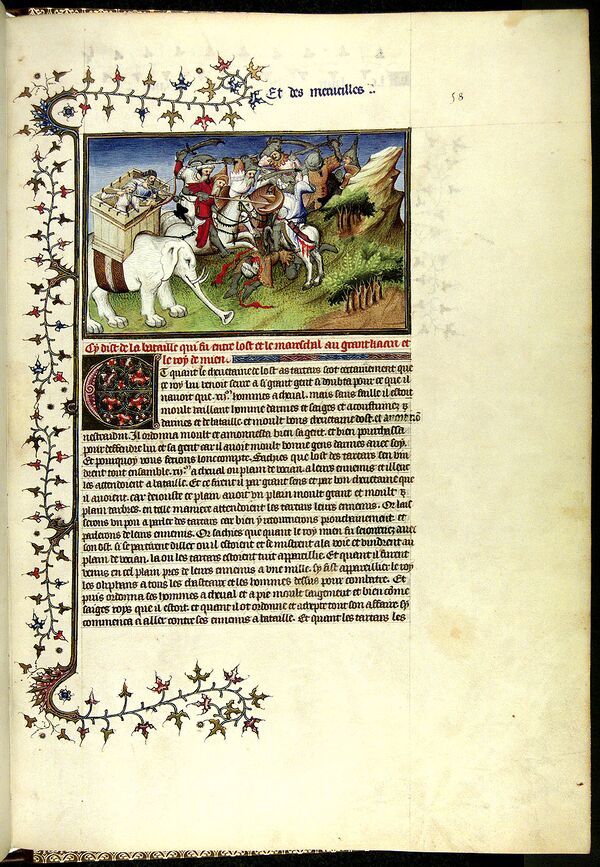 Et des merueilles
58
Cy dist de la bataille qui fu entre lost et le mareschal au grant kaan et
le roy de mien
Et quant le cheuetaine de lost as tartars scot certainement que
ce roy lui venoit seure a si grant gent si doubta pour ce que il
nauoit que .xij.m hommes a cheual. mais sans faille il estoit
moult vaillant homme darmes et saiges et acoustumez
darmes et de bataille et moult bons cheuetaine dost. et auoit nom
nestradin. Il ordonna moult et amonnesta bien sa gent. et bien pourchassa
pour deffendre lui et sa gent car il auoit moult bonne gens darmes auec soy.
Et pourquoy vous ferions lonc compte. Sachiez que lost des tartars sen vin
drent tout ensemble .xij.m a cheual ou plain de vocian a leurs ennemis et illeuc
les attendoient a bataille. Et ce firent il par grant sens et par bon cheuetaine que
il auoient. car de iouste ce plain auoit vn plain moult grant et moult
plain darbres. en telle maniere attendoient les tartars leurs ennemis. Or lais
serons vn pou a parler des tartars car bien y retournerons prouchainement. et
parlerons de leurs ennemis. Or sachiez que quant le roy mien fu seiournez auec
son ost. si se partirent dilec ou il estoient et se mistrent a la voie et vindrent au
plain de vocian. la ou les tartars estoient tuit appareillie. Et quant il furent
venus en cel plain pres de leurs ennemis a vne mille. sy fist appareillier le roy
les oliphans a tous les chasteaux et les hommes dessus pour combatre. Et
puis ordonna ses hommes a cheual et a pie moult saigement et bien come
saiges roys que il estoit. et quant il ot ordonne et adrepte tout son affaire sy
commenca a aller contre ses ennemis a bataille. Et quant les tartars les